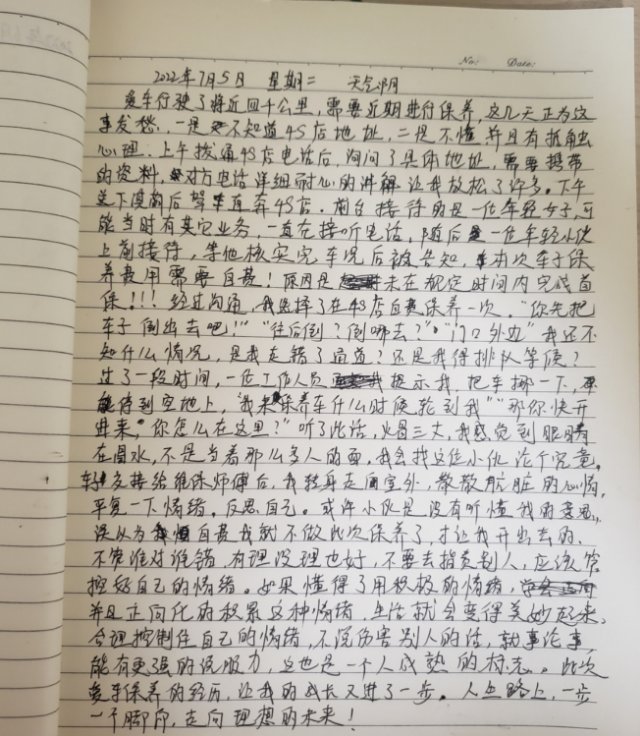 No:      Date:
2022年7月5日 星期二 天气 阴
爱车行驶了将近四千公里，需要近期进行保养，这几天正为这
事发愁，一是不知道4S店地址，二是不懂并且有抵触
心理，上午拨通4S店电话后，询问了具体地址，需要携带
的资料，对方电话详细耐心的讲解让我放松了许多。下午
下 前后驾车直奔4S店。前台接待的是一位年轻女子，可
能当时有其它业务，一直在接听电话，随后是一位年轻小伙
上前接待，等他核实完车况后被告知，本次车子保
养费用需要自费！原因是未在规定时间内完成首
保！！！经过沟通，我选择了在4S店自费保养一次。“你先把
车子倒出去吧！”“往后倒？倒哪去？”“门口外边”我还不
知什么情况，是我走错了通道？还是我得排队等候？
过了一段时间，一位工作人员提示我，把车挪一下，
停到空地上，“我来保养车什么时候轮到我”“那你快开
进来，“你怎么在这里？”听了此话，火冒三丈，我感觉到眼睛
在冒水，不是当着那么多人的面，我会找这位小伙论个究竟。
车子交接给维保师傅后，我转身走向室外，散散肮脏的心情，
平复一下情绪。反思自己。或许小伙是没有听懂我的意思，
误以为自费我就不做此次保养了，才让我开出去的，
不管谁对谁错，有理没理也好，不要去指责别人，应该管
控好自己的情绪。如果懂得了用积极的情绪，
并且正向化的积累这种情绪，生活就会变得美妙起来。
合理控制住自己的情绪，不说伤害别人的话，就事论事，
能有更强的说服力，这也是一个人成熟的标志。此次
爱车保养的经历，让我的成长又进了一步。人生路上，一步
一个脚印，走向理想的未来！